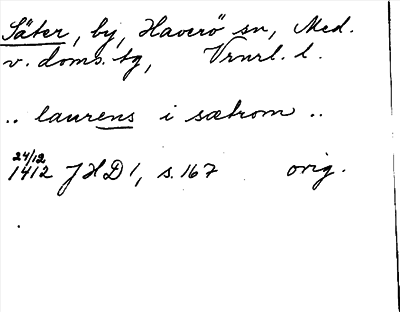 Säter, by, Haverö sn, Med.
v. doms. tg, Vrnrl. l.
.. laurens i sætrom ..
24/12
1412 JHD 1, s. 167 orig.